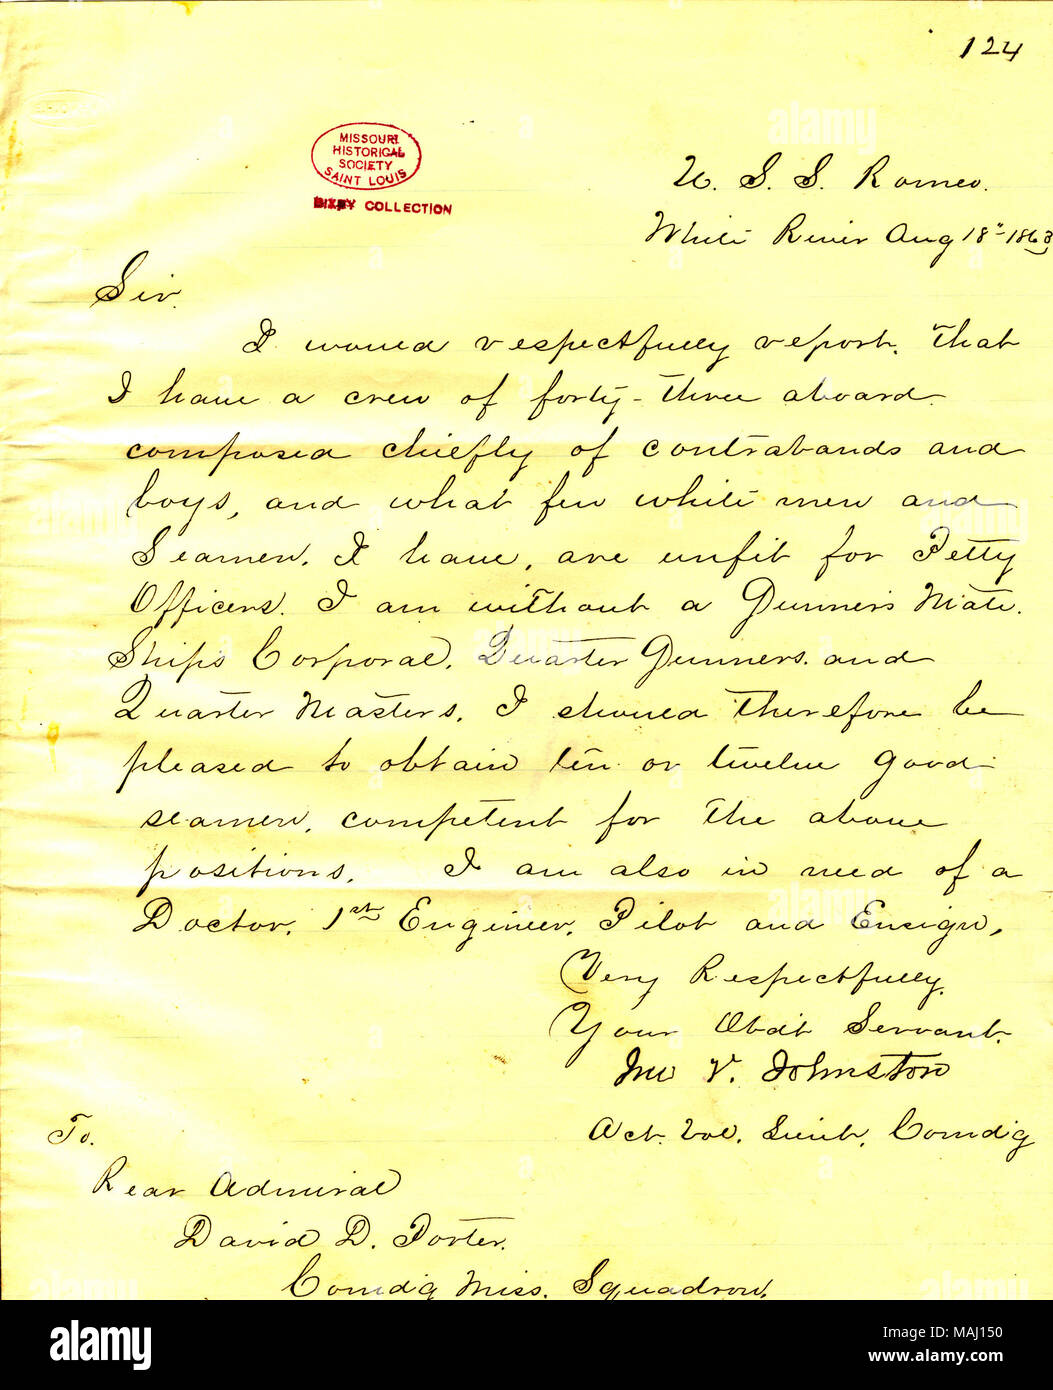 124
MISSOURI
HISTORICAL
SOCIETY
SAINT LOUIS
BIXBY COLLECTION
U. S. S. Romeo.
White River Aug 18" 1863
Sir.
I would respectfully report. that
I have a crew of forty-three aboard
composed chiefly of contrabands and
boys, and what few white men and
Seamen. I have, are unfit for Petty
Officers. I am without a Gunner's Mate.
Ships Corporal, Quarter Gunners. and
Quarter Masters. I should therefore be
pleased to obtain ten or twelve good
seamen, competent for the above
positions. I am also in need of a
Doctor. 1st Engineer. Pilot and Ensign.
Very Respectfully.
Your Obdt Servant.
Jno V. Johnston
Act. Vol. Lieut. Comdg
To.
Rear Admiral
David D. Porter.
Comdg Miss. Squadron.
alamy
Image ID: MAJ150
www.alamy.com